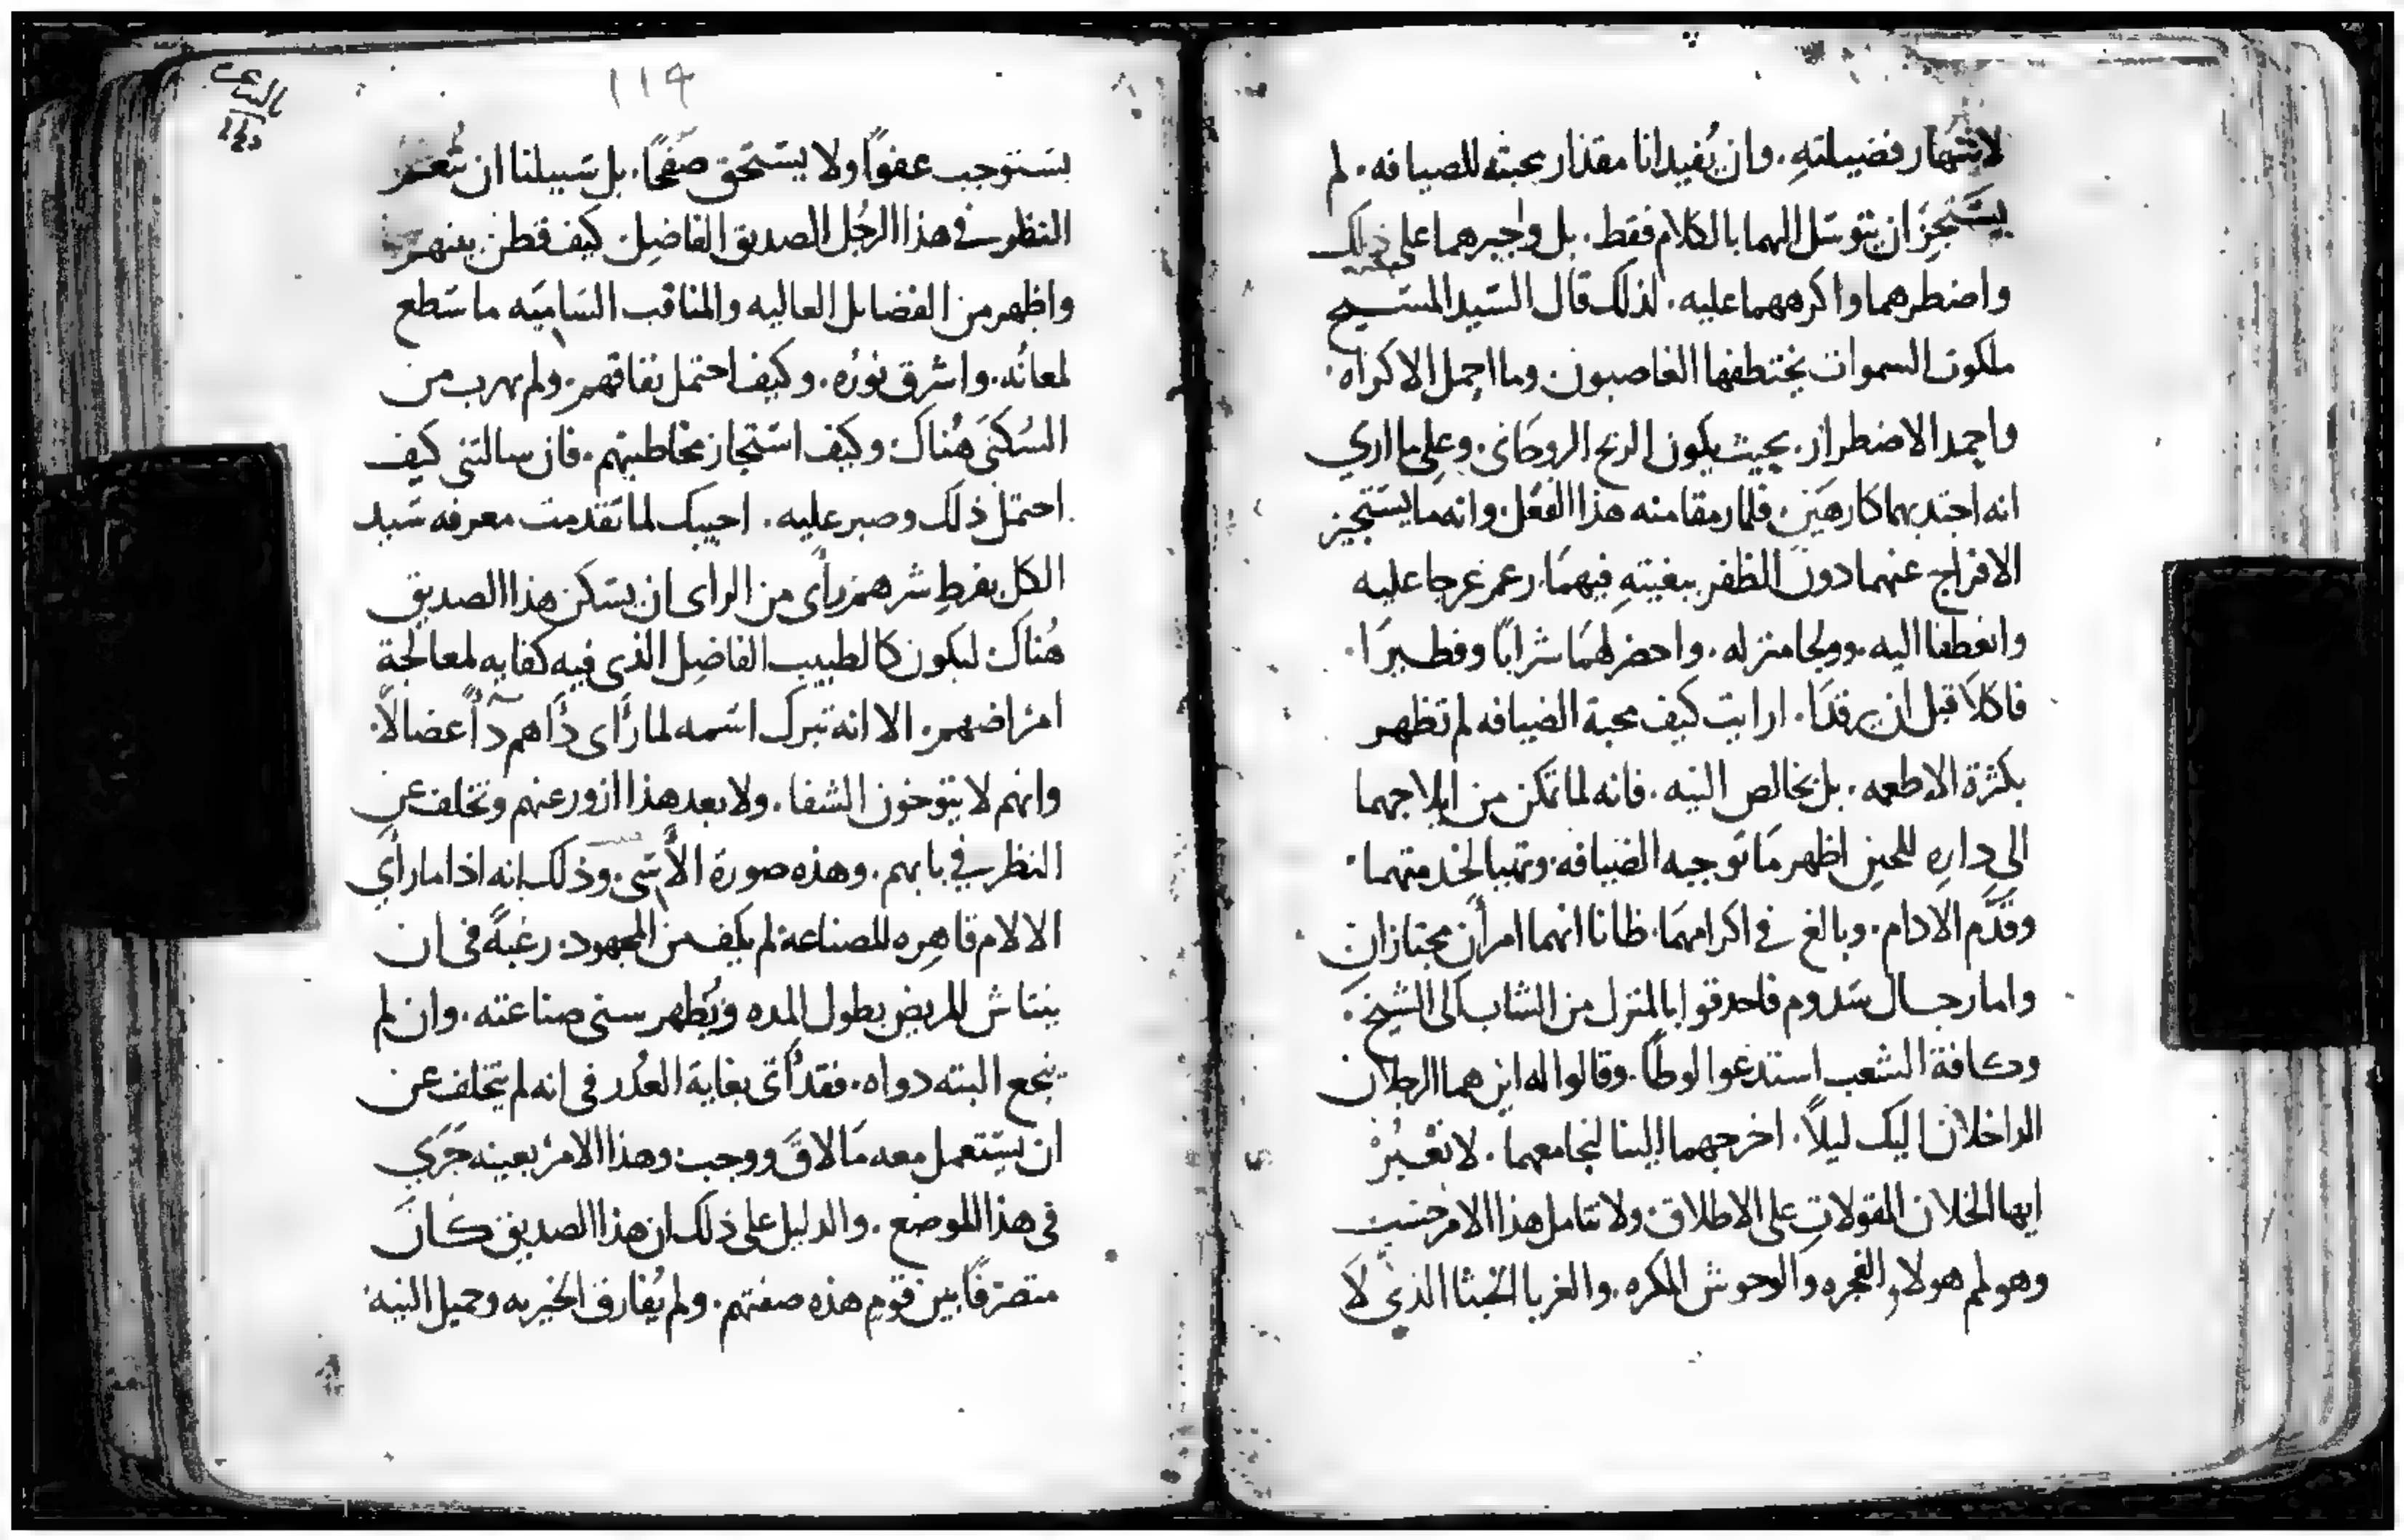 لاشتهار فضيلتهِ. وان يُفيدانا مقدار محبته للضيافه. لم
يستجِز ان يتوسل اليهما بالكلام فقط. بل واجبرهما على ذلك
واضطرهما واكرههما عليه. لذلك قال السيد المسيح
ملكوت السموات يختطفها الغاصبون وما اجمل الاكراه.
واحمد الاضطرار. بحيث يكون الربح الروحانى. وعلى ما اري
انه اجتدبهما كارهَين. فلما رمقا منه هذا الفعل. وانه ما يستجيز
الافراج عنهما دون الظفر ببغيتهِ فيهمَا. عرجا عليه
وانعطفا اليه. وولجا منزله. واحضر لهمَا شرابًا وفطيرًا.
فاكلاَ قبل ان يرقدَا. ارايت كيف محبة الضيافه لم تظهر
بكثرة الاطعمه. بل بخالص النيه. فانه لما تمكن من ايلاجهما
الى دارهِ للحين اظهر مَا توجبه الضيافه. وتهيا لخدمتهما.
وقدَّم الادام. وبالغ في اكرامهمَا. ظانا انهما امرأن مجتازان
واما رجال سَدوم فاحدقوا بالمنزل من الشاب الى الشيخ.
وكافة الشعب استدعوا لوطًا. وقالوا له اين هما الرجلان
الداخلان اليك ليلاً. اخرجهما الينا لنجامعهما. لا نعبُرْ
ايها الخلان المقولات على الاطلاق. ولا نتامل هذا الامر حسب
وهو لم هولاءِ الفجره والوحوش المكره. والغربا الخبثا الذى لاَ
١١٩
يستوجب عفوًا ولا يستحق صَفحًا. بل سَبيلنا ان نُنعم
النظر في هذا الرجُل الصديق الفاضِل. كيف قطن بينهم
واظهر من الفضايل العاليه والمناقب السَاميَه ما سَطع
لمعانُه. واشرق نورُه. وكيف احتمل نفاقهم. ولم يهرب من
السُكنَى هُناك وكيف استجاز مخاطبتهم. فان سالتنى كيف
احتمل ذلك وصبر عليه. اجيبك لما تقدمت معرفه سَيد
الكل بفرطِ شرهم رأى من الراى ان يسَكن هذا الصديق
هُناك ليكون كالطبيب الفاضِل الذى فيه كفايه لمعالجة
امرَاضهم. الا انه تبرك اسَمه لما رأى دأهم دآً عضالاً.
وانهم لا يتوخون الشفا. ولا بعد هذا ازور عنهم وتخلف عن
النظر في بابهم. وهذه صورة الأسَى. وذلك انه اذا ما رأي
الالام قاهِره للصناعة لم يكف من المجهود. رغبةً فى ان
ينتاش المريض بطول المده ويُظهر سنى صناعته. وان لم
ينجع البته دواه. فقد أتى بغاية العُذر فى انه لم يتخلف عن
ان يستعمل معه مَا لاقَ ووجب. وهذا الامرُ بعينه جَرَي
فى هذا الموضع. والدليل على ذلك ان هذا الصديق كان
متصرفًا بين قومٍ هذه صفتهم. ولم يُفارق الخيريه وجميل النيه.